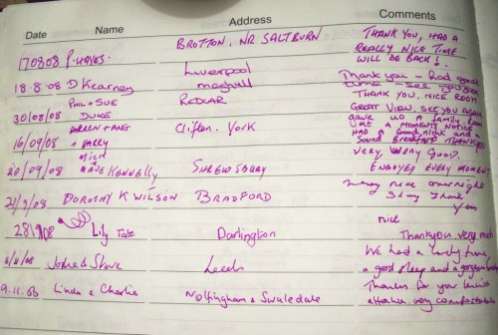 Date Name Address Comments
170808 P. HAYES BROTTON, NR SALTBURN THANK YOU, HAD A
REALLY NICE TIME
WILL BE BACK!
18.8.08 D Kearney Liverpool Thank you - Had good
time
30/08/08 PHIL + SUE REDCAR THANK YOU, NICE ROOM
GREAT VIEW. SEE YOU AGAIN
16/09/08 Clifton. York gave us a family room
at a moments notice
Had a good night and a
Sound Breakfast Thank you
20/09/08 CONNELLY SHREWSBURY VERY, VERY GOOD.
ENJOYED EVERY MOMENT
21/9/08 DOROTHY K WILSON BRADFORD very nice overnight
Stay Thank
You
28 Lily Tate Darlington nice
Thankyou very much
John & Steve Leeds We had a lovely time,
a good sleep and a gorgeous
9.11.08 Linda & Charlie Nottingham & Swaledale Thanks for your
very comfortable